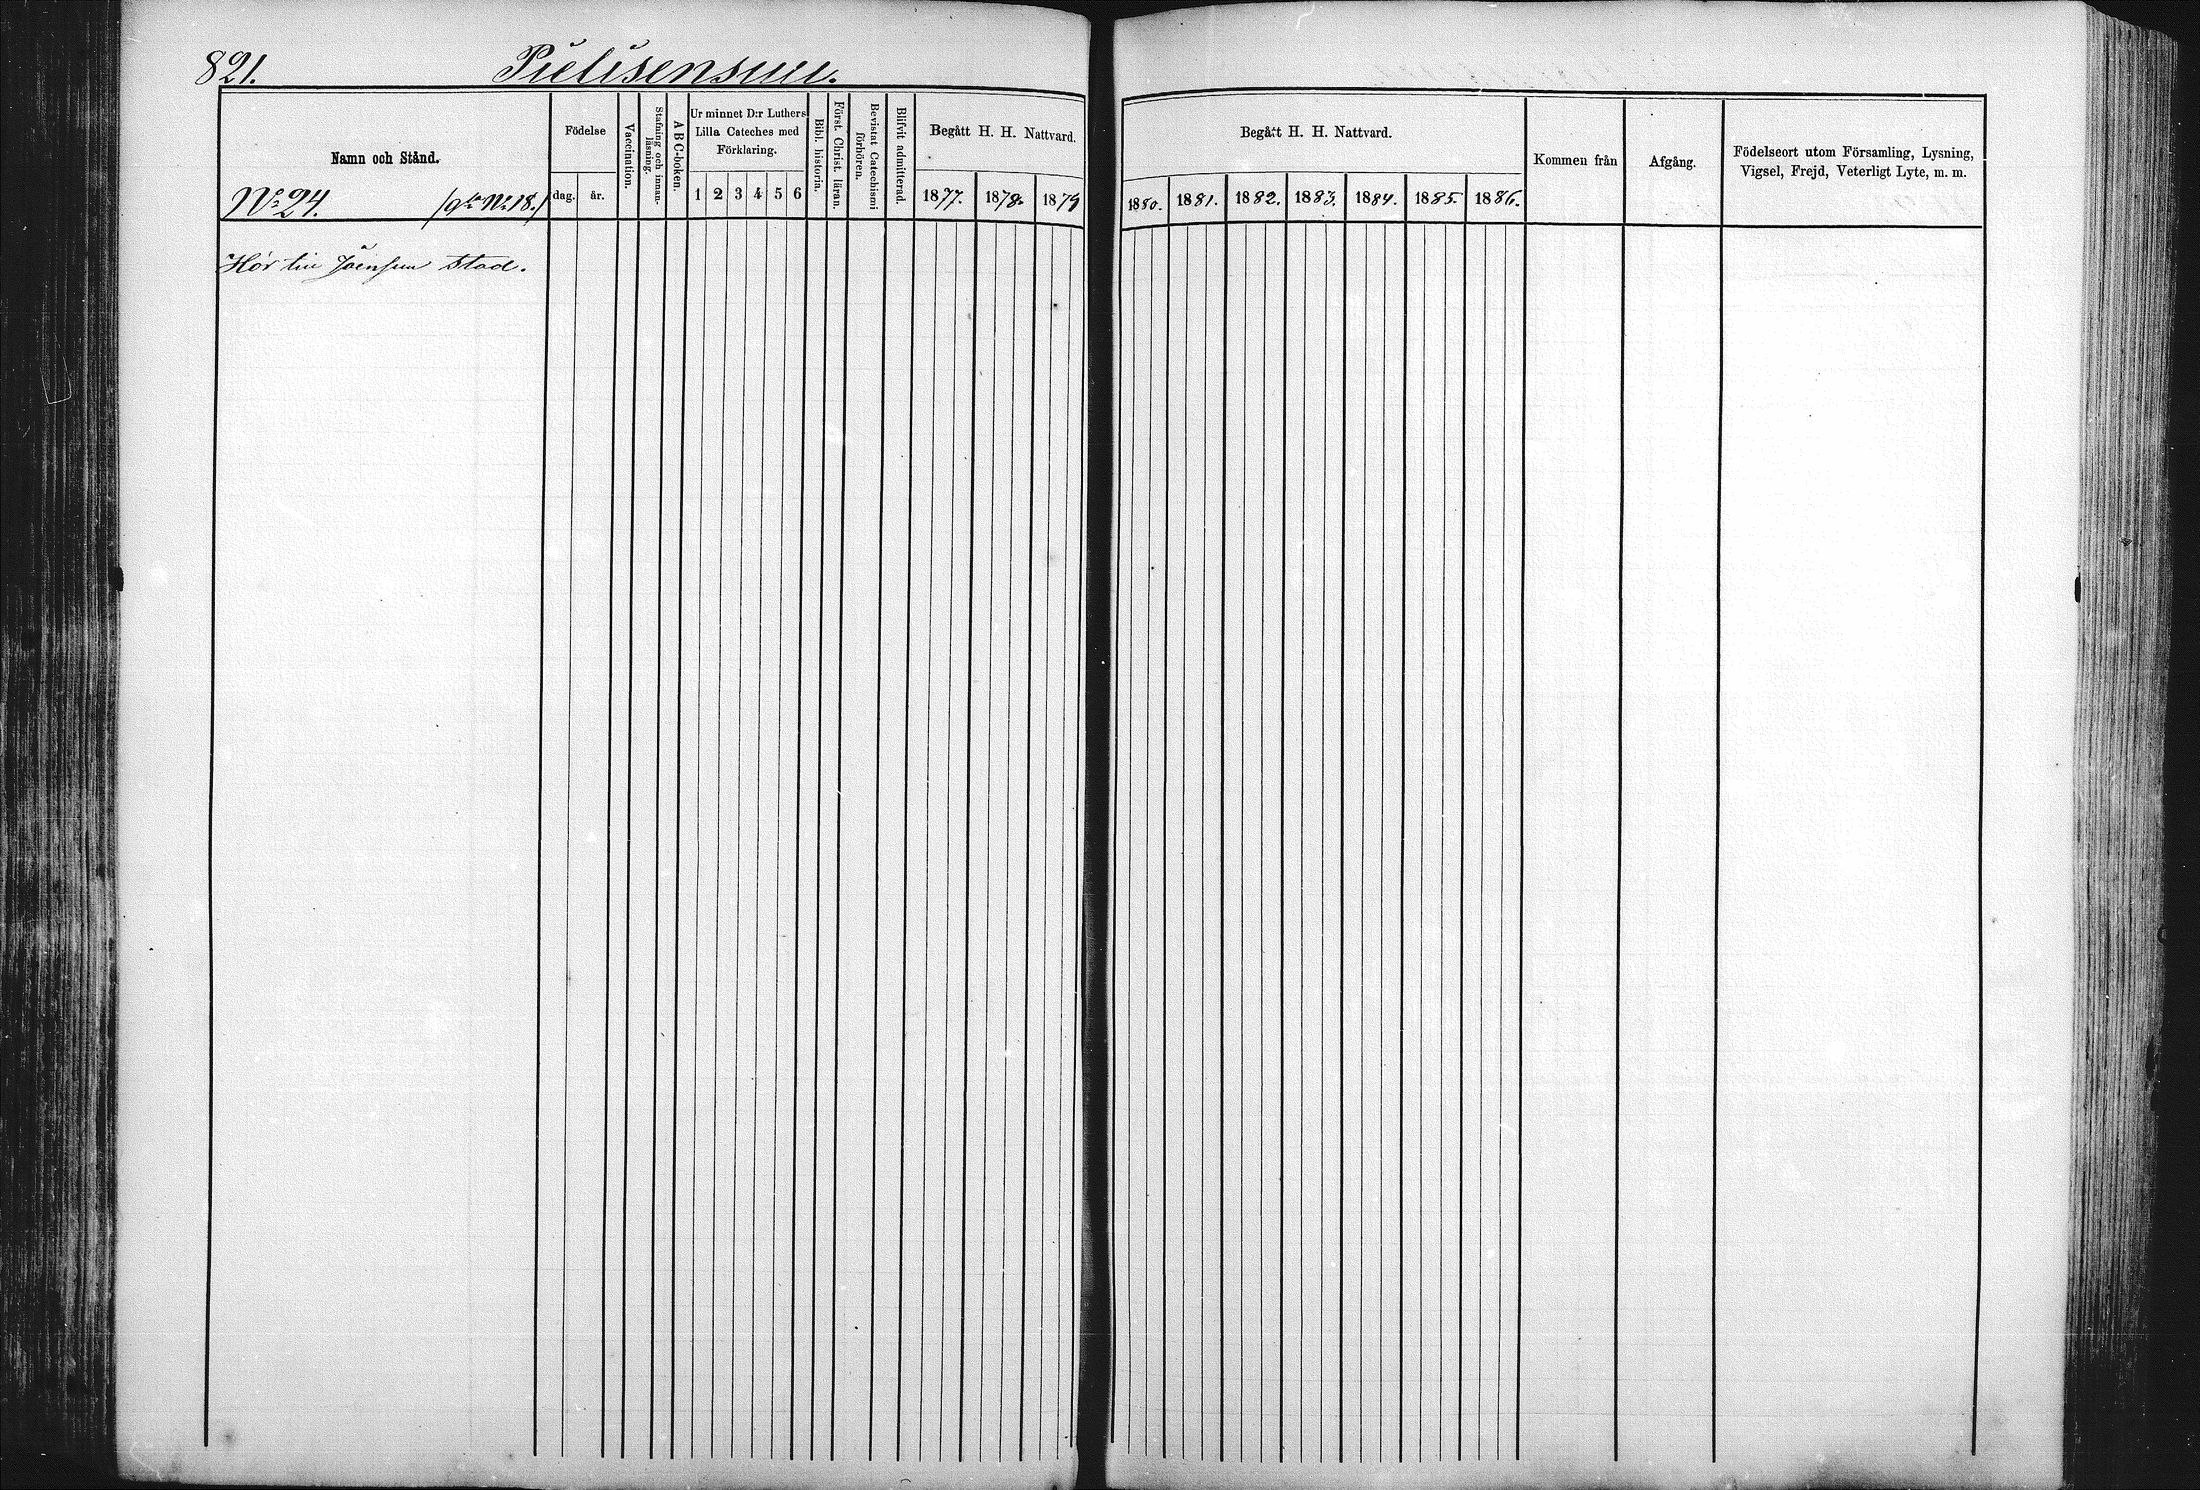 821.
Pielisensuu.
Namn och Stånd.
No 24.
Födelse
dag.
år.
Vaccination.
Stafning och innan-
läsning.
A B C-boken.
Ur minnet D:r Luthers
Lilla Cateches med
Förklaring.
1 2 3 4 5 6
Bibl. historia.
Först. Christ. läran.
Bevistat Catechismi
förhören.
Blifvit admitterad.
Begått H. H. Nattvard.
1877. 1878. 1879
Hör till Joensuu Stad.
Begått H. H. Nattvard.
1880. 1881. 1882. 1883. 1884. 1885. 1886.
Kommen från
Afgång.
Födelseort utom Församling, Lysning,
Vigsel, Frejd, Veterligt Lyte, m. m.